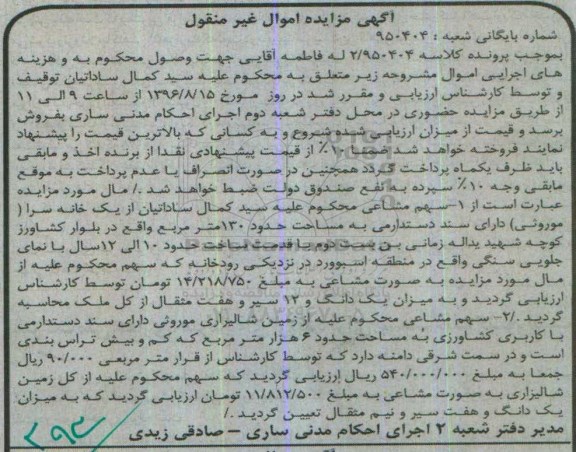 آگهی مزایده اموال غیر منقول
شماره بایگانی شعبه : ۹۵۰۴۰۴
بموجب پرونده کلاسه ۲/۹۵۰۴۰۴ له فاطمه آقایی جهت وصول محکوم به و هزینه
های اجرایی اموال مشروحه زیر متعلق به محکوم علیه سید کمال ساداتیان توقیف
و توسط کارشناس ارزیابی و مقرر شد در روز مورخ ۱۳۹۶/۸/۱۵ از ساعت ۹ الی ۱۱
از طریق مزایده حضوری در محل دفتر شعبه دوم اجرای احکام مدنی ساری بفروش
برسد و قیمت از میزان ارزیابی شده شروع و به کسانی که بالاترین قیمت را پیشنهاد
نمایند فروخته خواهد شد ضمنا ۱۰٪ از قیمت پیشنهادی نقدا از برنده اخذ و مابقی
باید ظرف یکماه پرداخت گردد همچنین در صورت انصراف یا عدم پرداخت به موقع
مابقی وجه ۱۰٪ سپرده به نفع صندوق دولت ضبط خواهد شد ./ مال مورد مزایده
عبارت است از ۱-سهم مشاعی محکوم علیه سید کمال ساداتیان از یک خانه سرا (
موروثی) دارای سند دستدارمی به مساحت حدود ۱۳۰متر مربع واقع در بلوار کشاورز
کوچه شهید یداله زمانی بن بست دوم با قدمت ساخت حدود ۱۰ الی ۱۲سال با نمای
جلویی سنگی واقع در منطقه اسبوورد در نزدیکی رودخانه که سهم محکوم علیه از
مال مورد مزایده به صورت مشاعی به مبلغ ۱۴/۲۱۸/۷۵۰ تومان توسط کارشناس
ارزیابی گردید و به میزان یک دانگ و ۱۲ سیر و هفت مثقال از کل ملک محاسبه
گردید ./۲- سهم مشاعی محکوم علیه از زمین شالیزاری موروثی دارای سند دستدارمی
با کاربری کشاورزی به مساحت حدود ۶ هزار متر مربع که کم و بیش تراس بندی
است و در سمت شرقی دامنه دارد که توسط کارشناس از قرار متر مربعی ۹۰/۰۰۰ ریال
جمعا به مبلغ ۵۴۰/۰۰۰/۰۰۰ ریال ارزیابی گردید که سهم محکوم علیه از کل زمین
شالیزاری به صورت مشاعی به مبلغ ۱۱/۸۱۲/۵۰۰ تومان ارزیابی گردید که به میزان
یک دانگ و هفت سیر و نیم مثقال تعیین گردید ./
مدیر دفتر شعبه ۲ اجرای احکام مدنی ساری – صادقی زیدی